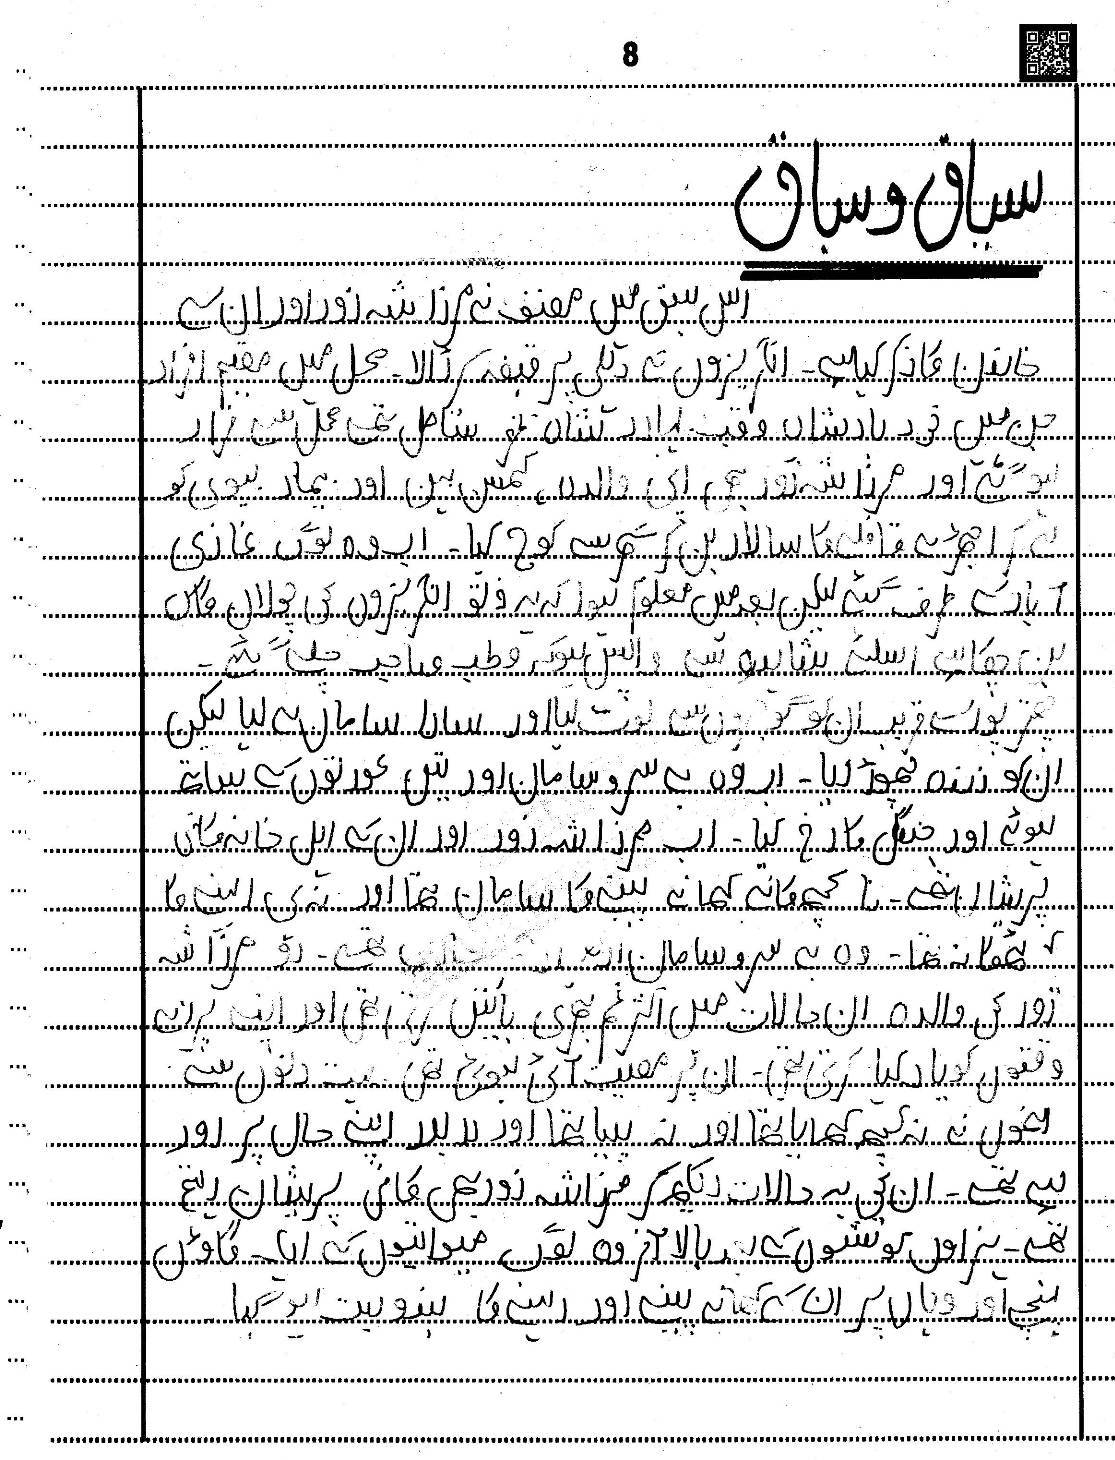 8
سیاق و سباق
اس سبق میں مصنف نے مرزا شہ زور اور ان کے
خاندان کا ذکر کیا ہے۔ انگریزوں نے دہلی پر قبضہ کر ڈالا۔ محل میں مقیم افراد
جن میں خود بادشاہ وقت بہادر شاہ ظفر شامل تھے محل سے فرار
ہو گئے اور مرزا شہ زور بھی اپنی والدہ، کمسن بہن اور بیمار بیوی کو
لے کر اجڑے قافلے کا سالار بن کر شہر سے کوچ کیا۔ اب وہ لوگ غازی
آباد کے طرف گئے لیکن بعد میں معلوم ہوا کہ یہ وہ تو انگریزوں کی جولان گاہ
بن چکا ہے اسلئے شاہدہ سے واپس ہوکر قطب صاحب چلے گئے۔
چھتر پور کے قریب ان کو گوجروں نے لوٹ لیا اور سارا سامان لے لیا لیکن
ان کو زندہ چھوڑ دیا۔ اب وہ بے سر و سامان اور تین عورتوں کے ساتھ
ہوئے اور جنگل کا رخ کیا۔ اب مرزا شہ زور اور ان کے اہل خانہ کافی
پریشان تھے۔ نا کچھ کھانے کھانہ پینے کا سامان تھا اور نہ ہی رہنے کا
ٹھکانہ تھا۔ وہ بے سر و سامان تھے۔ تو مرزا شہ
زور کی والدہ ان حالات میں اکثر غم بھری باتیں کرتی تھی اور اپنے پرانے
وقتوں کو یاد کیا کرتی تھی۔ ان پر مصیبت آئی ہوئی تھی بہت دنوں سے
انھوں نے نہ کچھ کھایا تھا اور نہ پیا تھا اور بار بار اپنے حال پر اور
رہے تھے۔ ان کی یہ حالات دیکھ کر مرزا شہ زور بھی کافی پریشان رہتے
تھے۔ ہزاروں کوششوں کے بعد بالآخر وہ لوگ میواتیوں کے ایک گاؤں
پہنچے اور وہاں پر ان کے کھانے پینے اور رہنے کا بندوبست ہو گیا۔